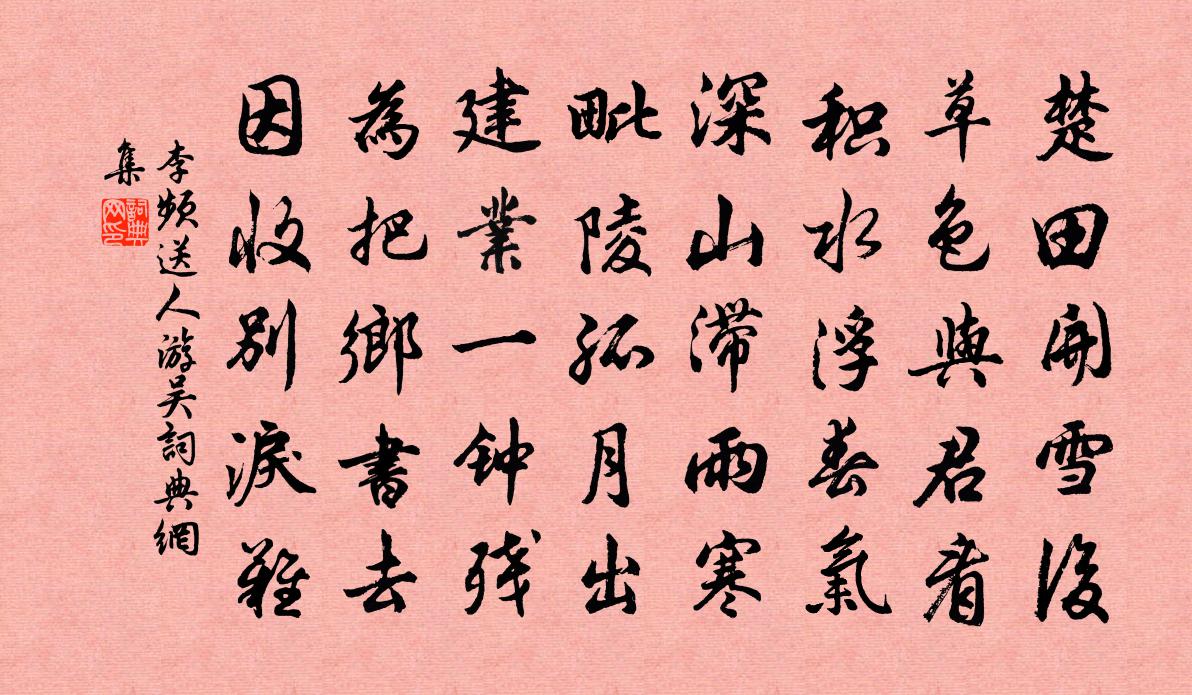 楚田開雪後
草色與君看
积水浮春氣
深山滯雨寒
毗陵孤月出
建業一钟残
為把鄉書去
因收別淚難
李頻送人游吴詞典網
集
詞典
网印